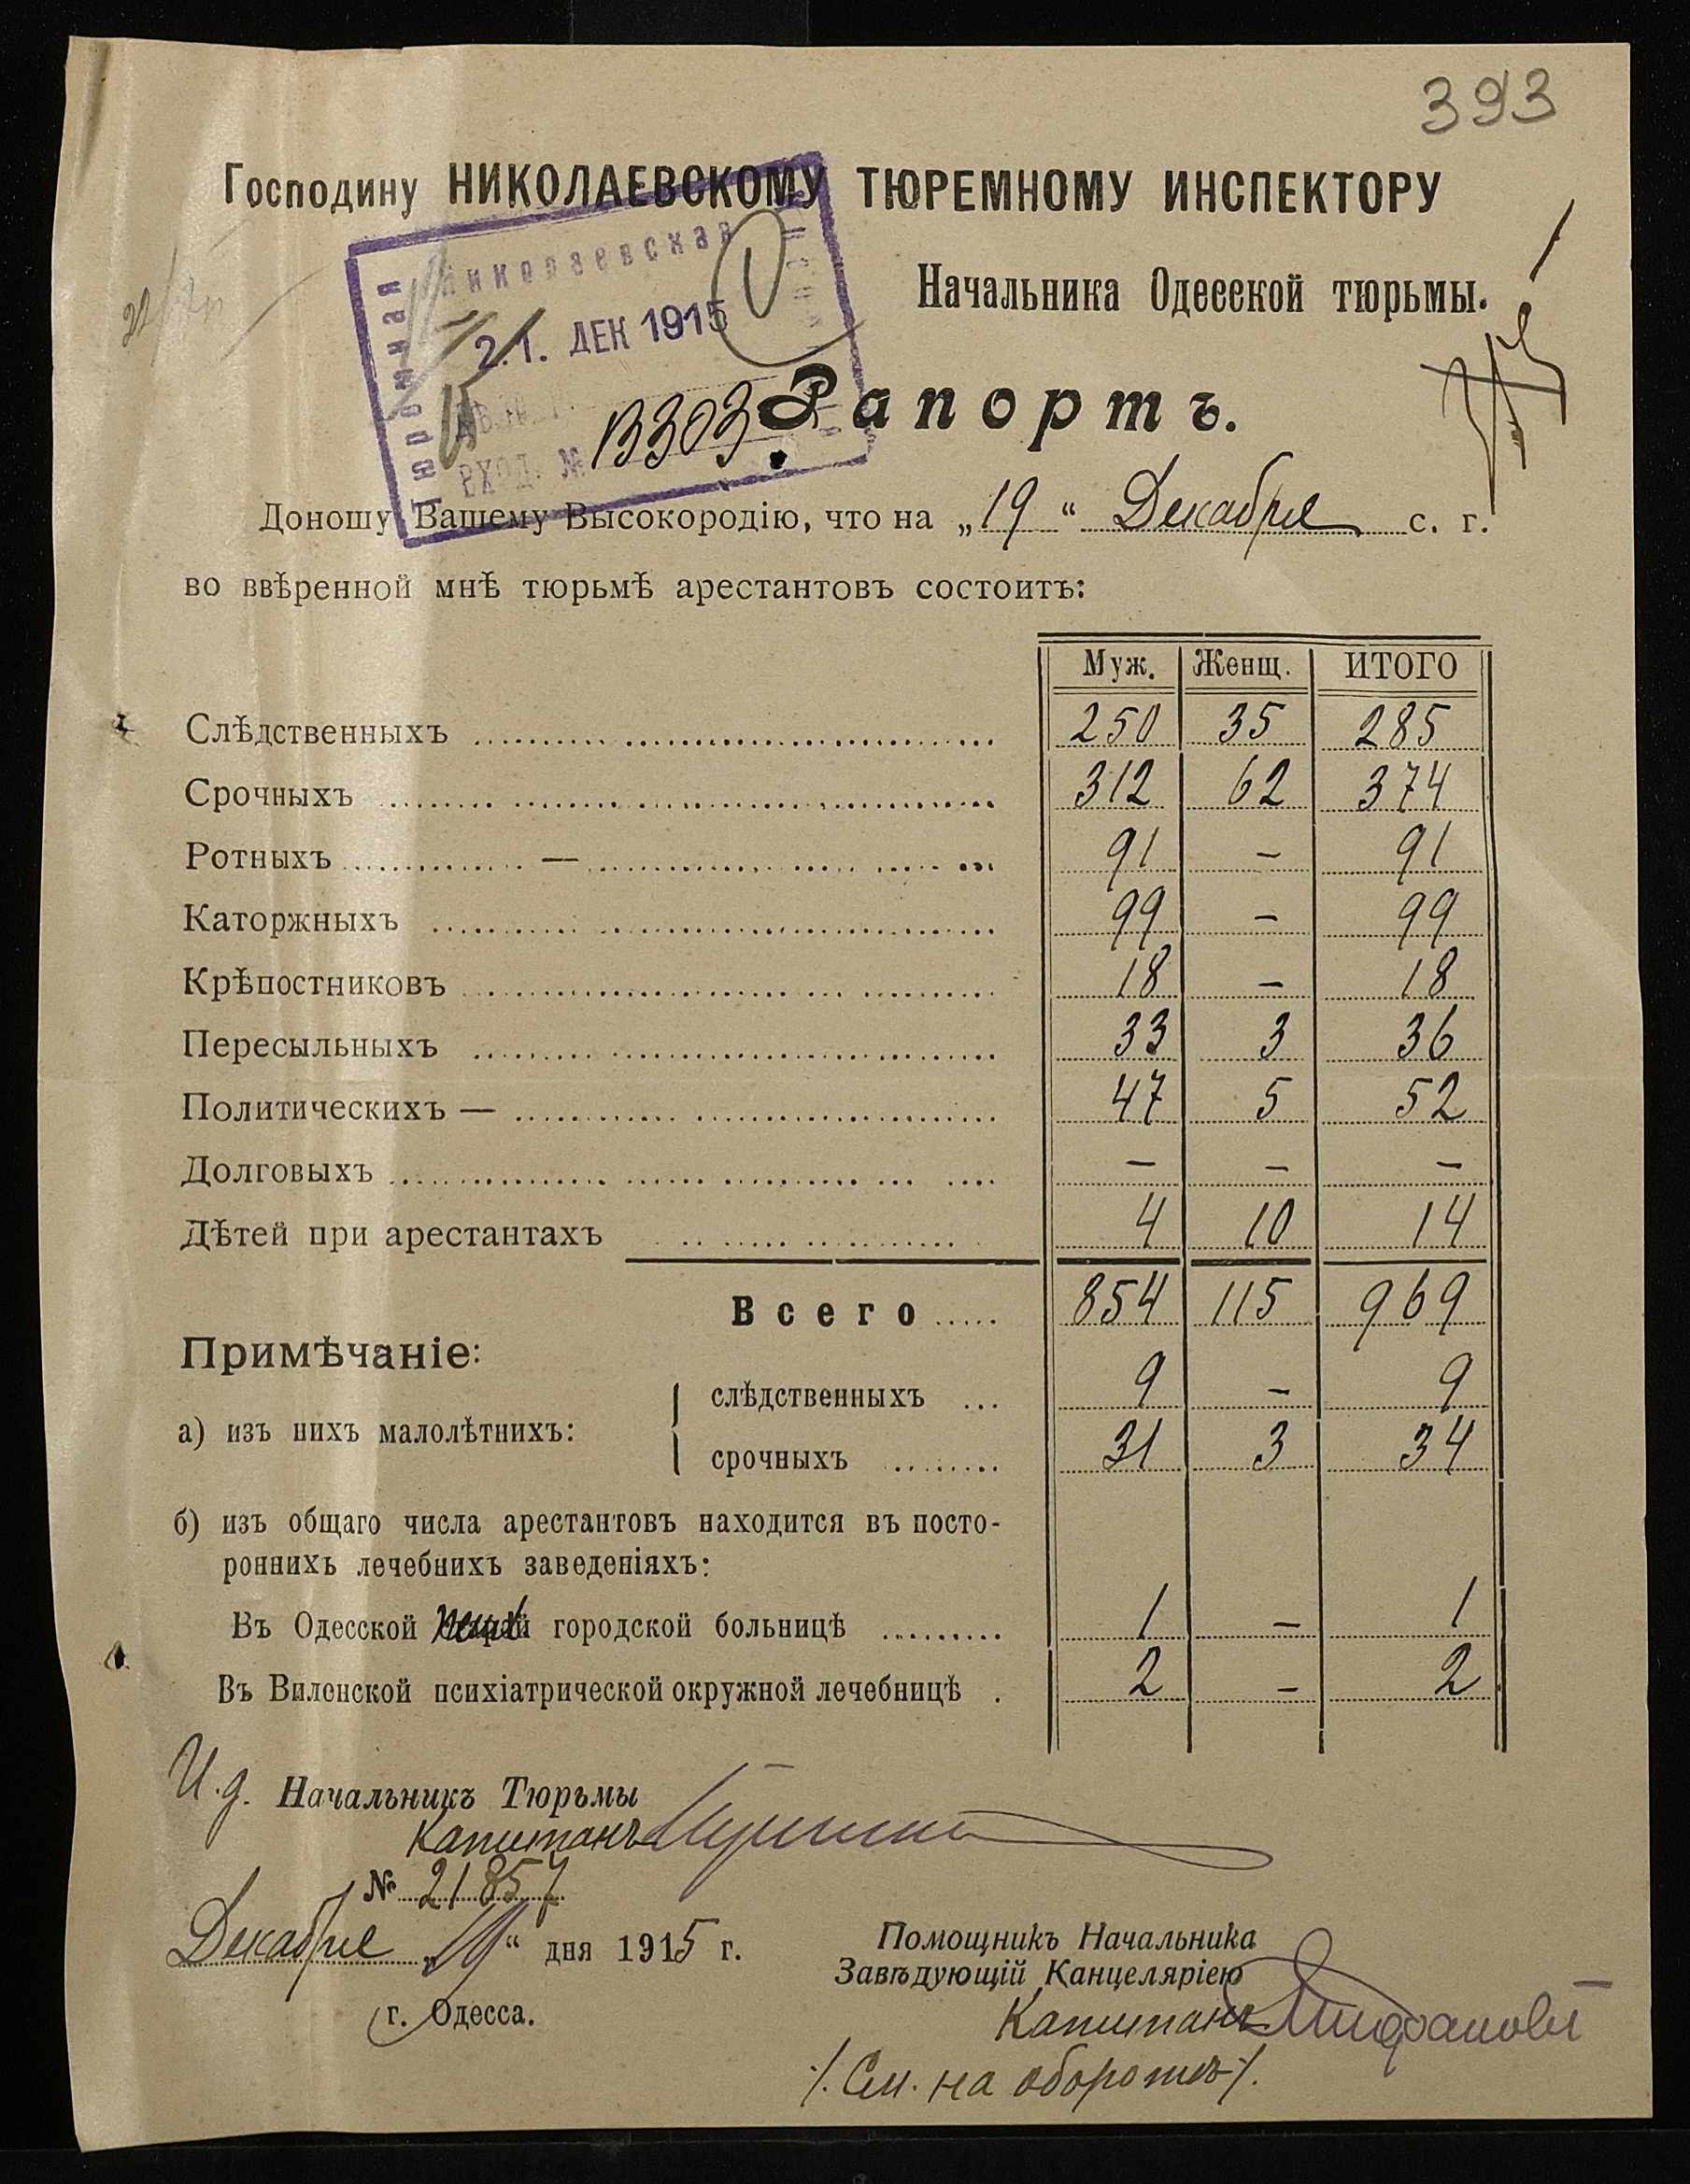 393
Господину НИКОЛАЕВСКОМУ ТЮРЕМНОМУ ИНСПЕКТОРУ
Николаевская
Тюремная
21. ДЕК 1915
ВХОД. № 13303
Начальника Одесской тюрьмы.
Рапортъ.
Доношу Вашему Высокородію, что на „19“ Декабря с. г.
во ввѣренной мнѣ тюрьмѣ арестантовъ состоитъ:
Муж. Женщ. ИТОГО
Слѣдственныхъ 250 35 285
Срочныхъ 312 62 374
Ротныхъ — 91 – 91
Каторжныхъ 99 – 99
Крѣпостниковъ 18 – 18
Пересыльныхъ 33 3 36
Политическихъ — 47 5 52
Долговыхъ – – –
Дѣтей при арестантахъ 4 10 14
Всего 854 115 969
Примѣчаніе:
а) изъ нихъ малолѣтнихъ:
слѣдственныхъ 9 – 9
срочныхъ 31 3 34
б) изъ общаго числа арестантовъ находится въ посто-
роннихъ лечебнихъ заведеніяхъ:
Въ Одесской городской больницѣ 1 – 1
Въ Виленской психіатрической окружной лечебницѣ 2 – 2
И.д. Начальникъ Тюрьмы
Капитанъ
№ 21857
Декабря „19“ дня 1915 г.
г. Одесса.
Помощникъ Начальника
Завѣдующій Канцеляріею
Капитанъ
/. См. на оборотѣ /.